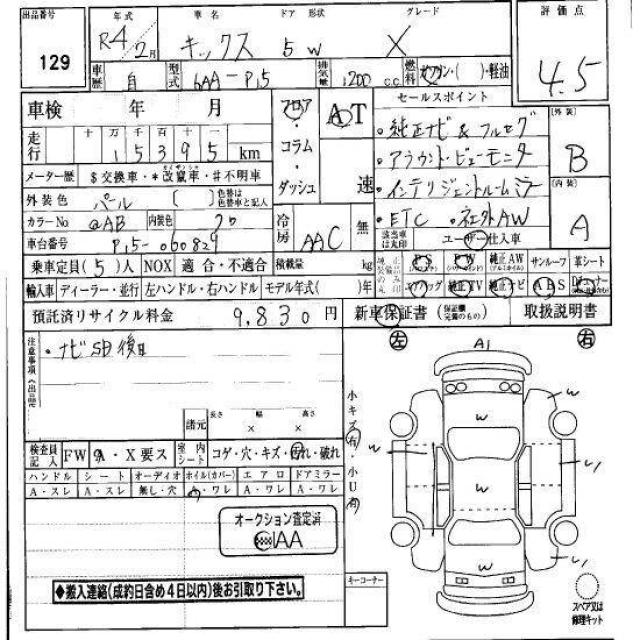 出品番号 年式 車名 ドア 形状 グレード 評価点
129 R4 2月 キックス 5 W X 4.5
車歴 自 型式 6AA-P15 排気量 1200 c.c. 燃料 ガソリン・( )・軽油
車検 年 月 フロア・コラム・ダッシュ AT 速 セールスポイント 外装 B
走行 十 万 千 百 十 一 ・純正ナビ&フルセグ
15395 km ・アラウンドビューモニター
メーター歴 $交換車・*改竄車・#不明車 ・インテリジェントルームミラー 内装 A
外装色 パール ( ) 色替は色替車と記入 ・ETC ・社外AW
カラーNo @AB 内装色 クロ 冷房 AAC 無 該当車は丸印 ユーザー仕入車
車台番号 P15-060829
乗車定員(5)人 NOX 適合・不適合 積載量 kg PS PW 純正AW サンルーフ 革シート
輸入車 ディーラー・並行 左ハンドル・右ハンドル モデル年式( )年 エアバッグ 純正TV 純正ナビ ABS
預託済リサイクル料金 9,830円 新車保証書(保証継承簿のもの) 取扱説明書
注意事項(出品店) ・ナビSD後日 左 A1 右
諸元 長さ 幅 高さ × × 小キズ(有)・小U(有)
検査員記入 FW A・X要ス 室内シート コゲ・穴・キズ・汚れ・破れ
ハンドル シート オーディオ ホイル(カバー) エアロ ドアミラー
A・スレ A・スレ 無し・穴 A・ワレ A・ワレ A・ワレ
W W W W W W
オークション査定済
IAA
◆搬入連絡(成約日含め4日以内)後お引取り下さい。
キーコーナー スペア又は修理キット